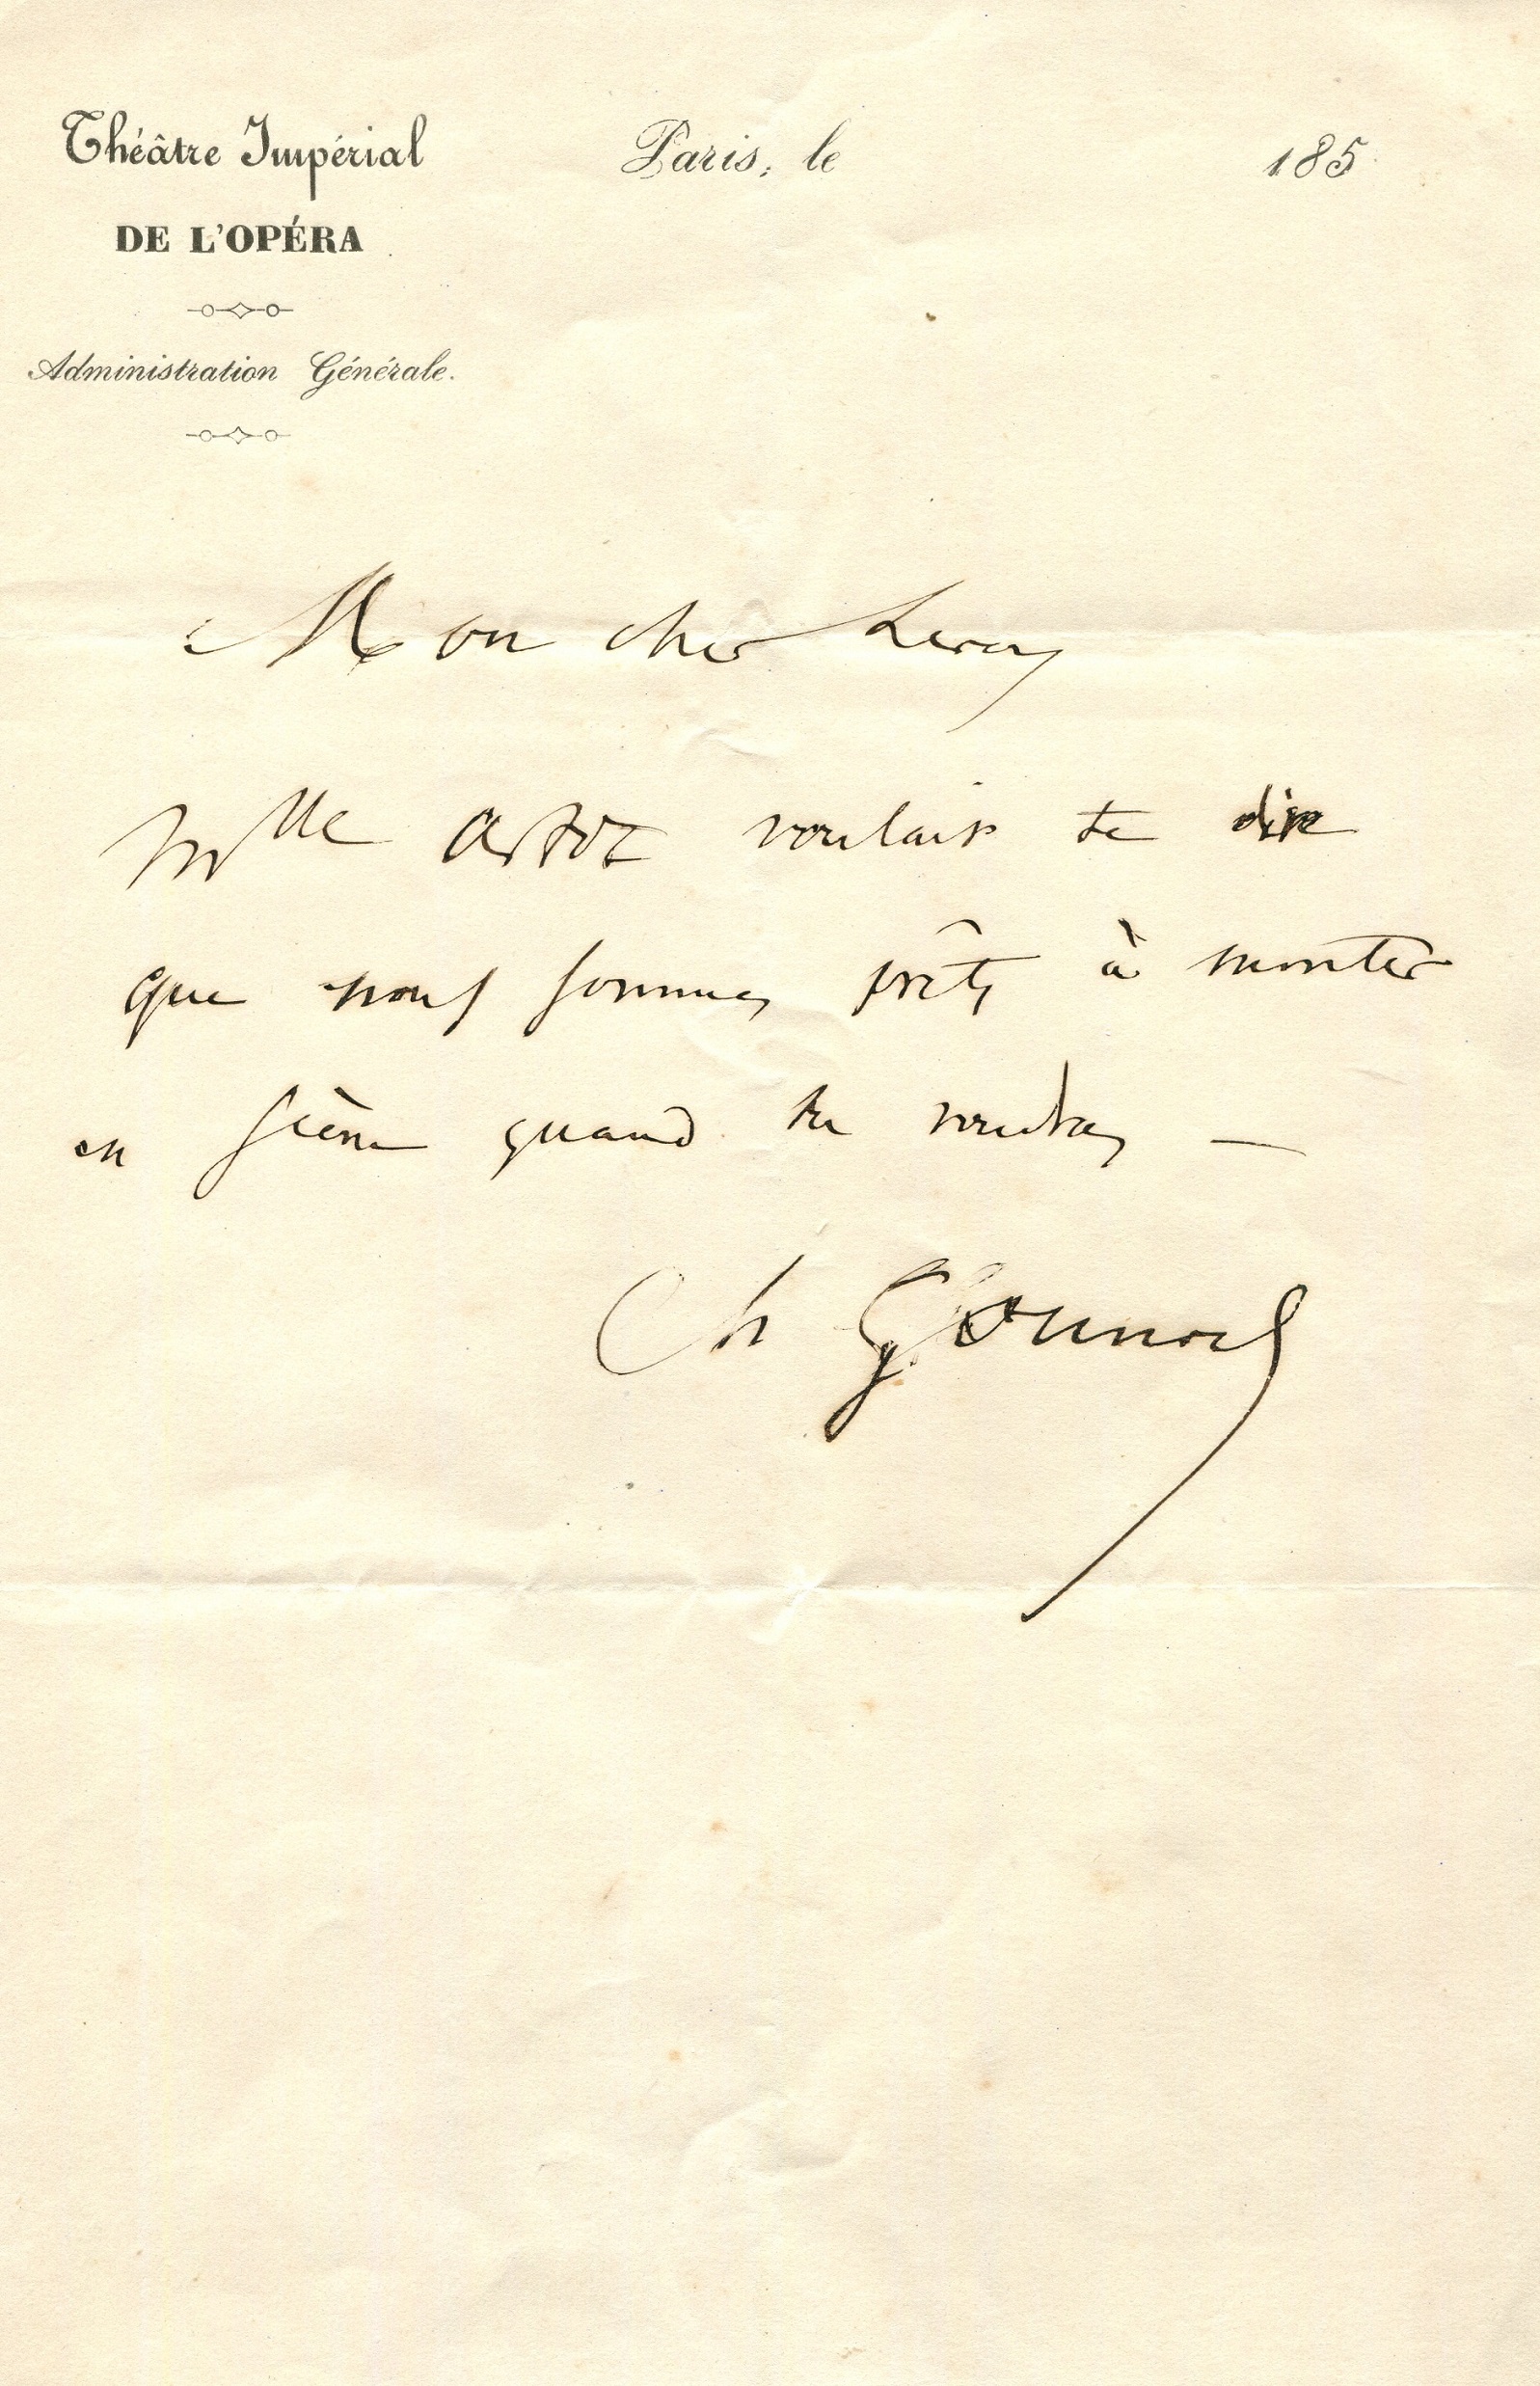 Théâtre Impérial
DE L'OPÉRA
Administration Générale.
Paris, le 185
Mon cher Leroy
Mlle Artot voulait te dire
que nous sommes prêts à monter
en scène quand tu voudras —
Ch Gounod